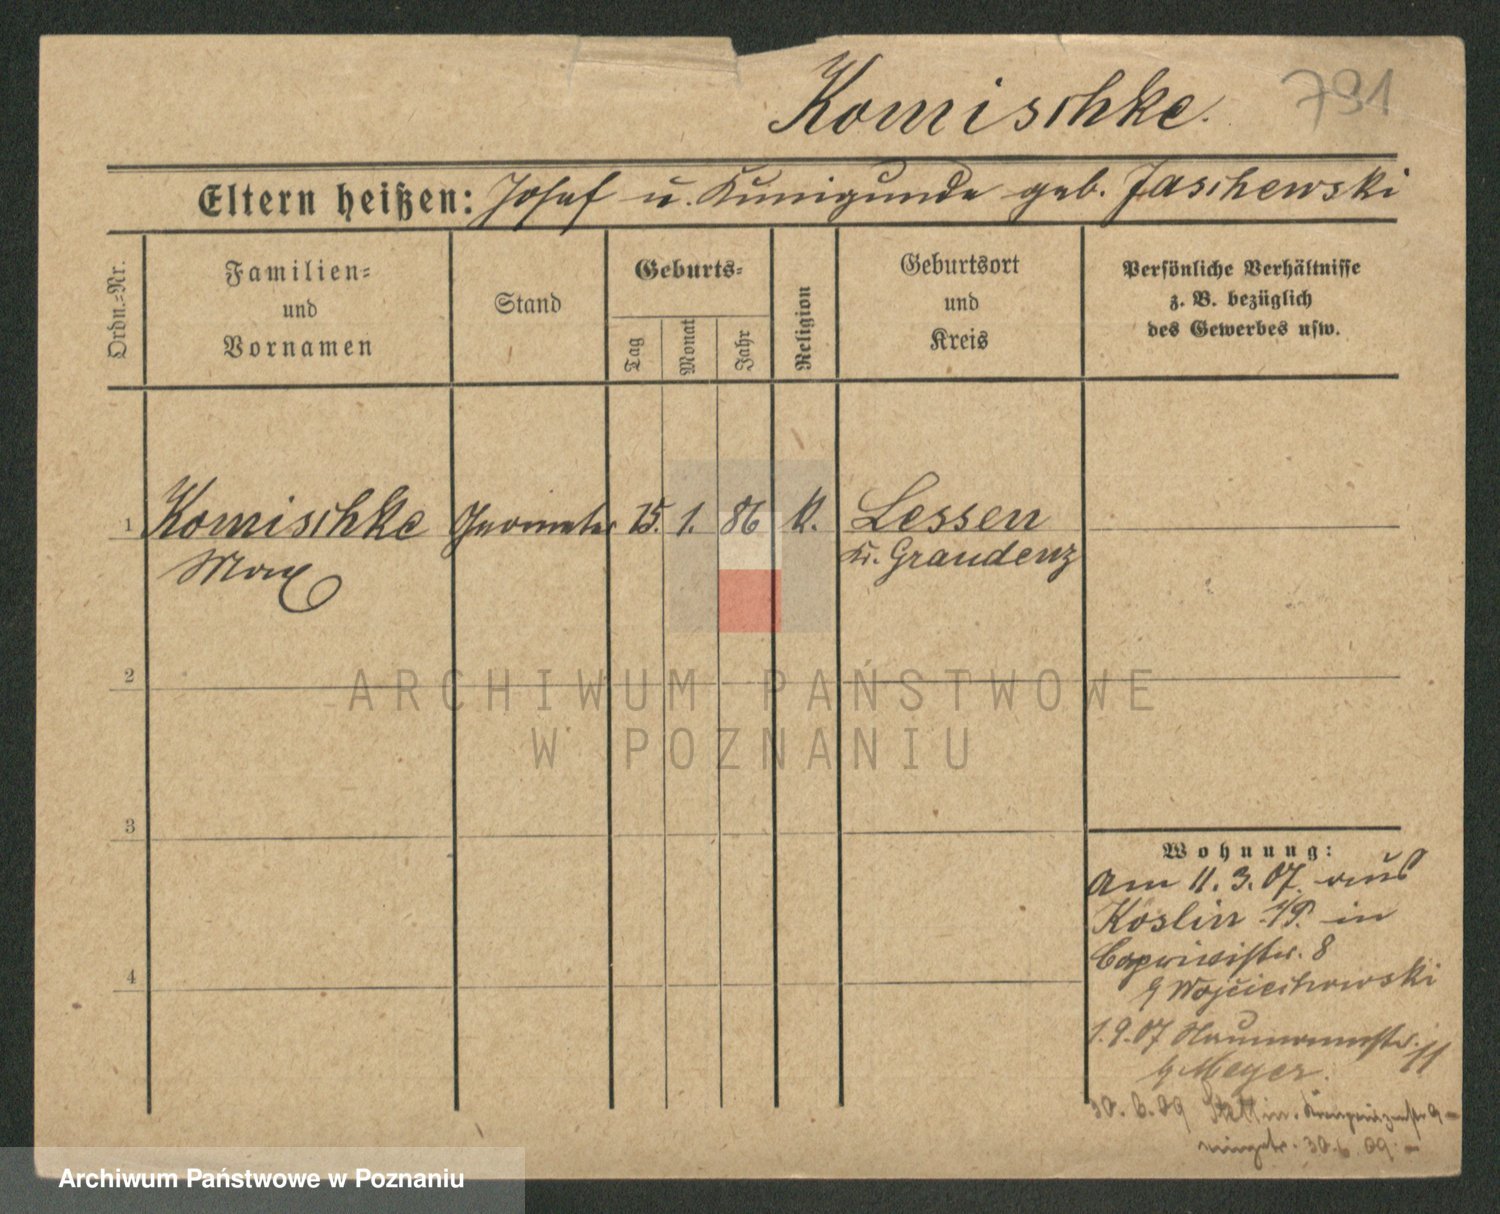 Komischke.
791
Eltern heißen: Josef u. Kunigunde geb. Jaschewski
Ordn.=Nr.
Familien=
und
Vornamen
Stand
Geburts=
Tag
Monat
Jahr
Religion
Geburtsort
und
Kreis
Persönliche Verhältnisse
z. B. bezüglich
des Gewerbes usw.
1 Komischke Geometer 15. 1. 86 K. Lessen
Max Kr. Graudenz
2
ARCHIWUM PAŃSTWOWE
W POZNANIU
3
Wohnung:
Am 11. 3. 07. aus
Köslin in
Caprivistr. 8
Wojciechowski
1.9.07 Naumannstr. 11
Meyer.
30. 6. 09 Stettin. 9
30.6.09.
4
Archiwum Państwowe w Poznaniu